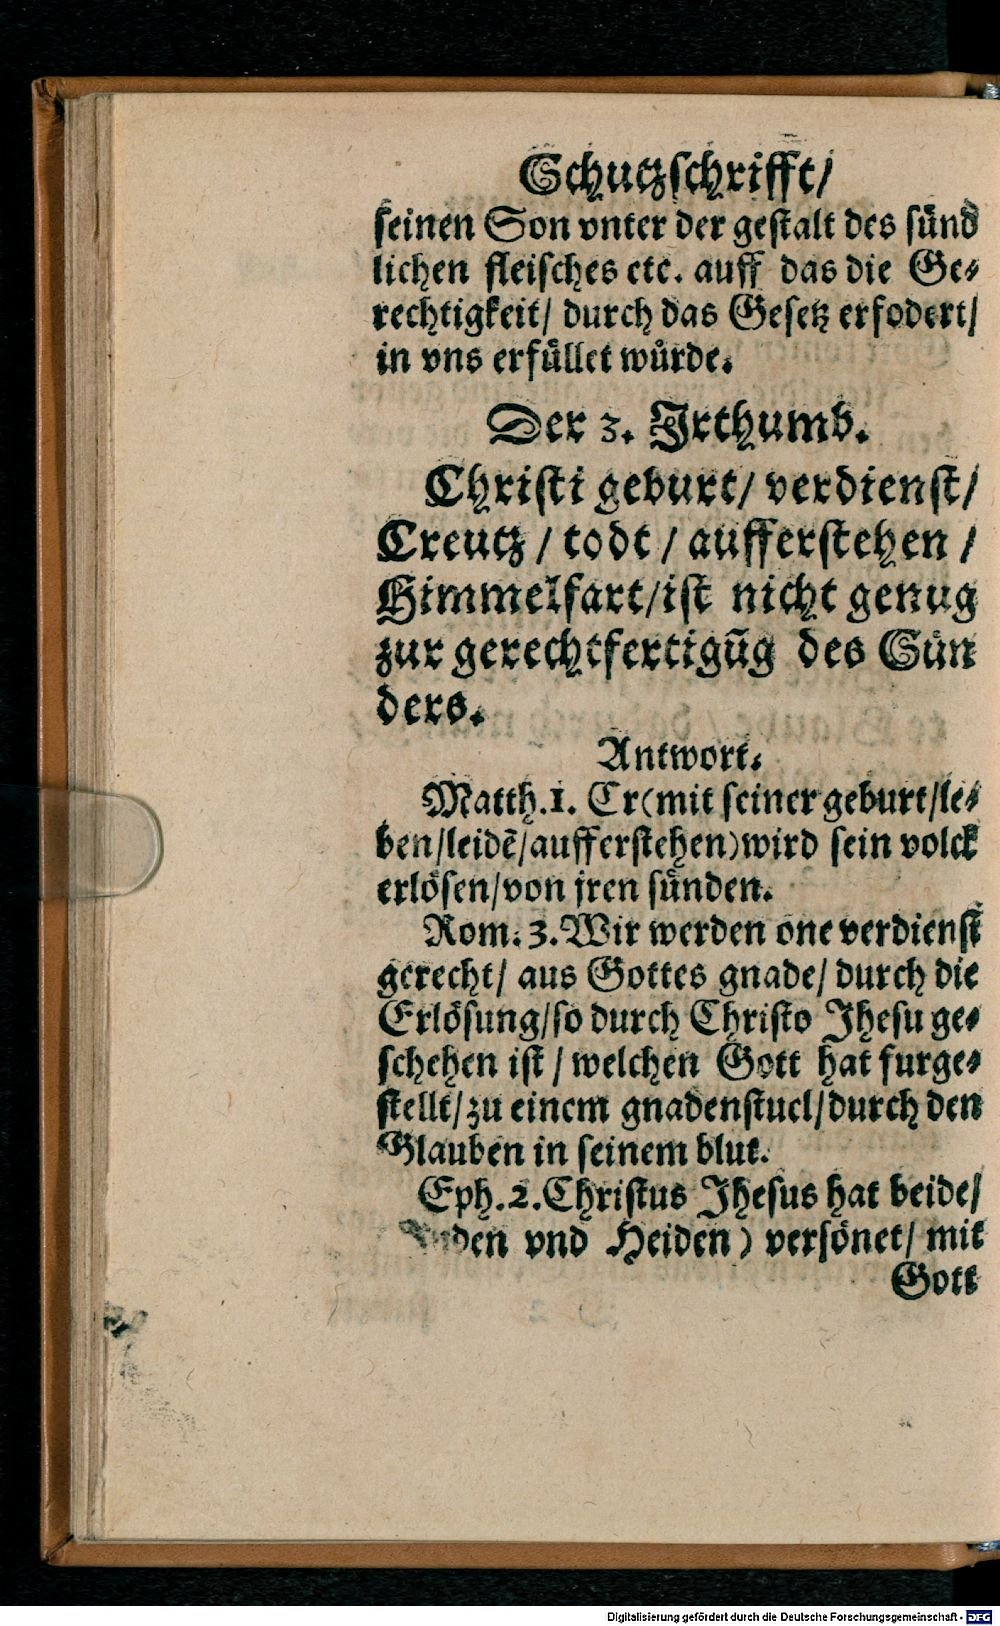 Schutzschrifft/
seinen Son vnter der gestalt des sünd
lichen fleisches etc. auff das die Ge-
rechtigkeit/ durch das Gesetz erfodert/
in vns erfüllet würde.
Der 3. Irthumb.
Christi geburt/ verdienst/
Creutz / todt / aufferstehen /
Himmelfart/ist nicht genug
zur gerechtfertigūg des Sün
ders.
Antwort.
Matth.1. Er(mit seiner geburt/le-
ben/leidē/aufferstehen)wird sein volck
erlösen/von jren sünden.
Rom. 3. Wir werden one verdienst
gerecht/ aus Gottes gnade/ durch die
Erlösung/so durch Christo Jhesu ge-
schehen ist / welchen Gott hat furge-
stellt/ zu einem gnadenstuel/durch den
Glauben in seinem blut.
Eph.2.Christus Jhesus hat beide/
vnd Heiden) versönet/ mit
Gott
Digitalisierung gefördert durch die Deutsche Forschungsgemeinschaft - DFG